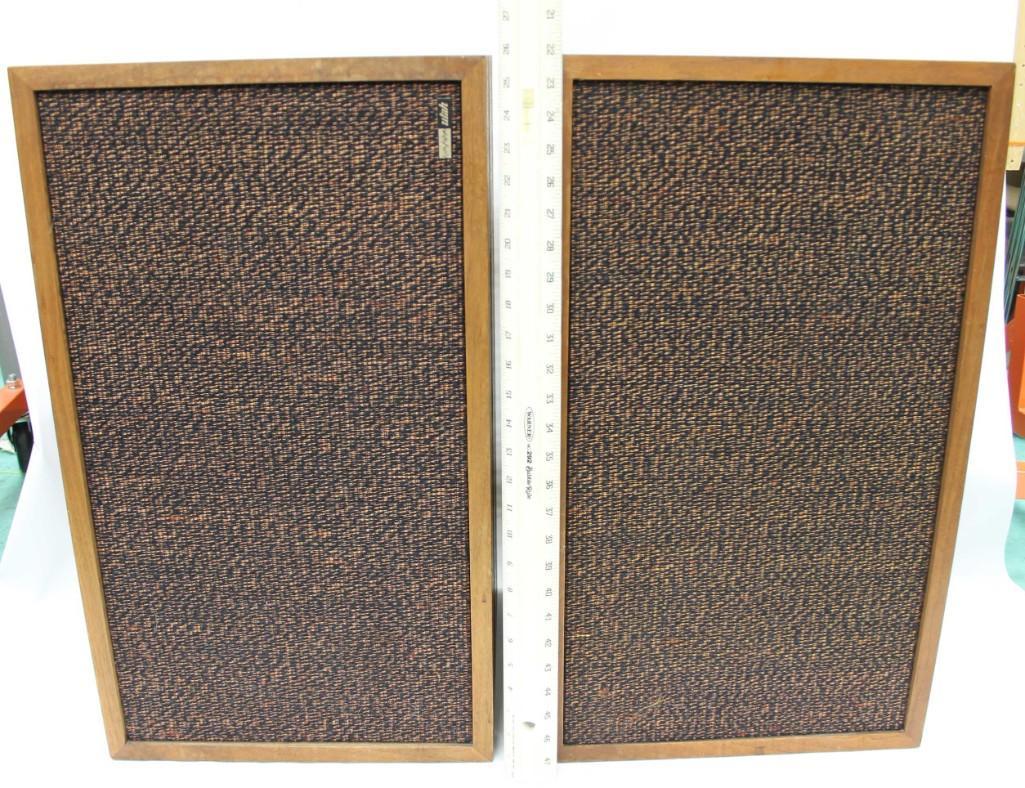 27 26 25 24 23 22 21 20 19 18 17 16 15 14 13 12 11 10 9 8 7 6 5 4
21 22 23 24 25 26 27 28 29 30 31 32 33 34 35 36 37 38 39 40 41 42 43 44 45 46 47
WARNER
No. 292